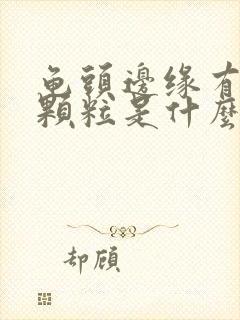 龟頭邊缘有
顆粒是什麼
却顾